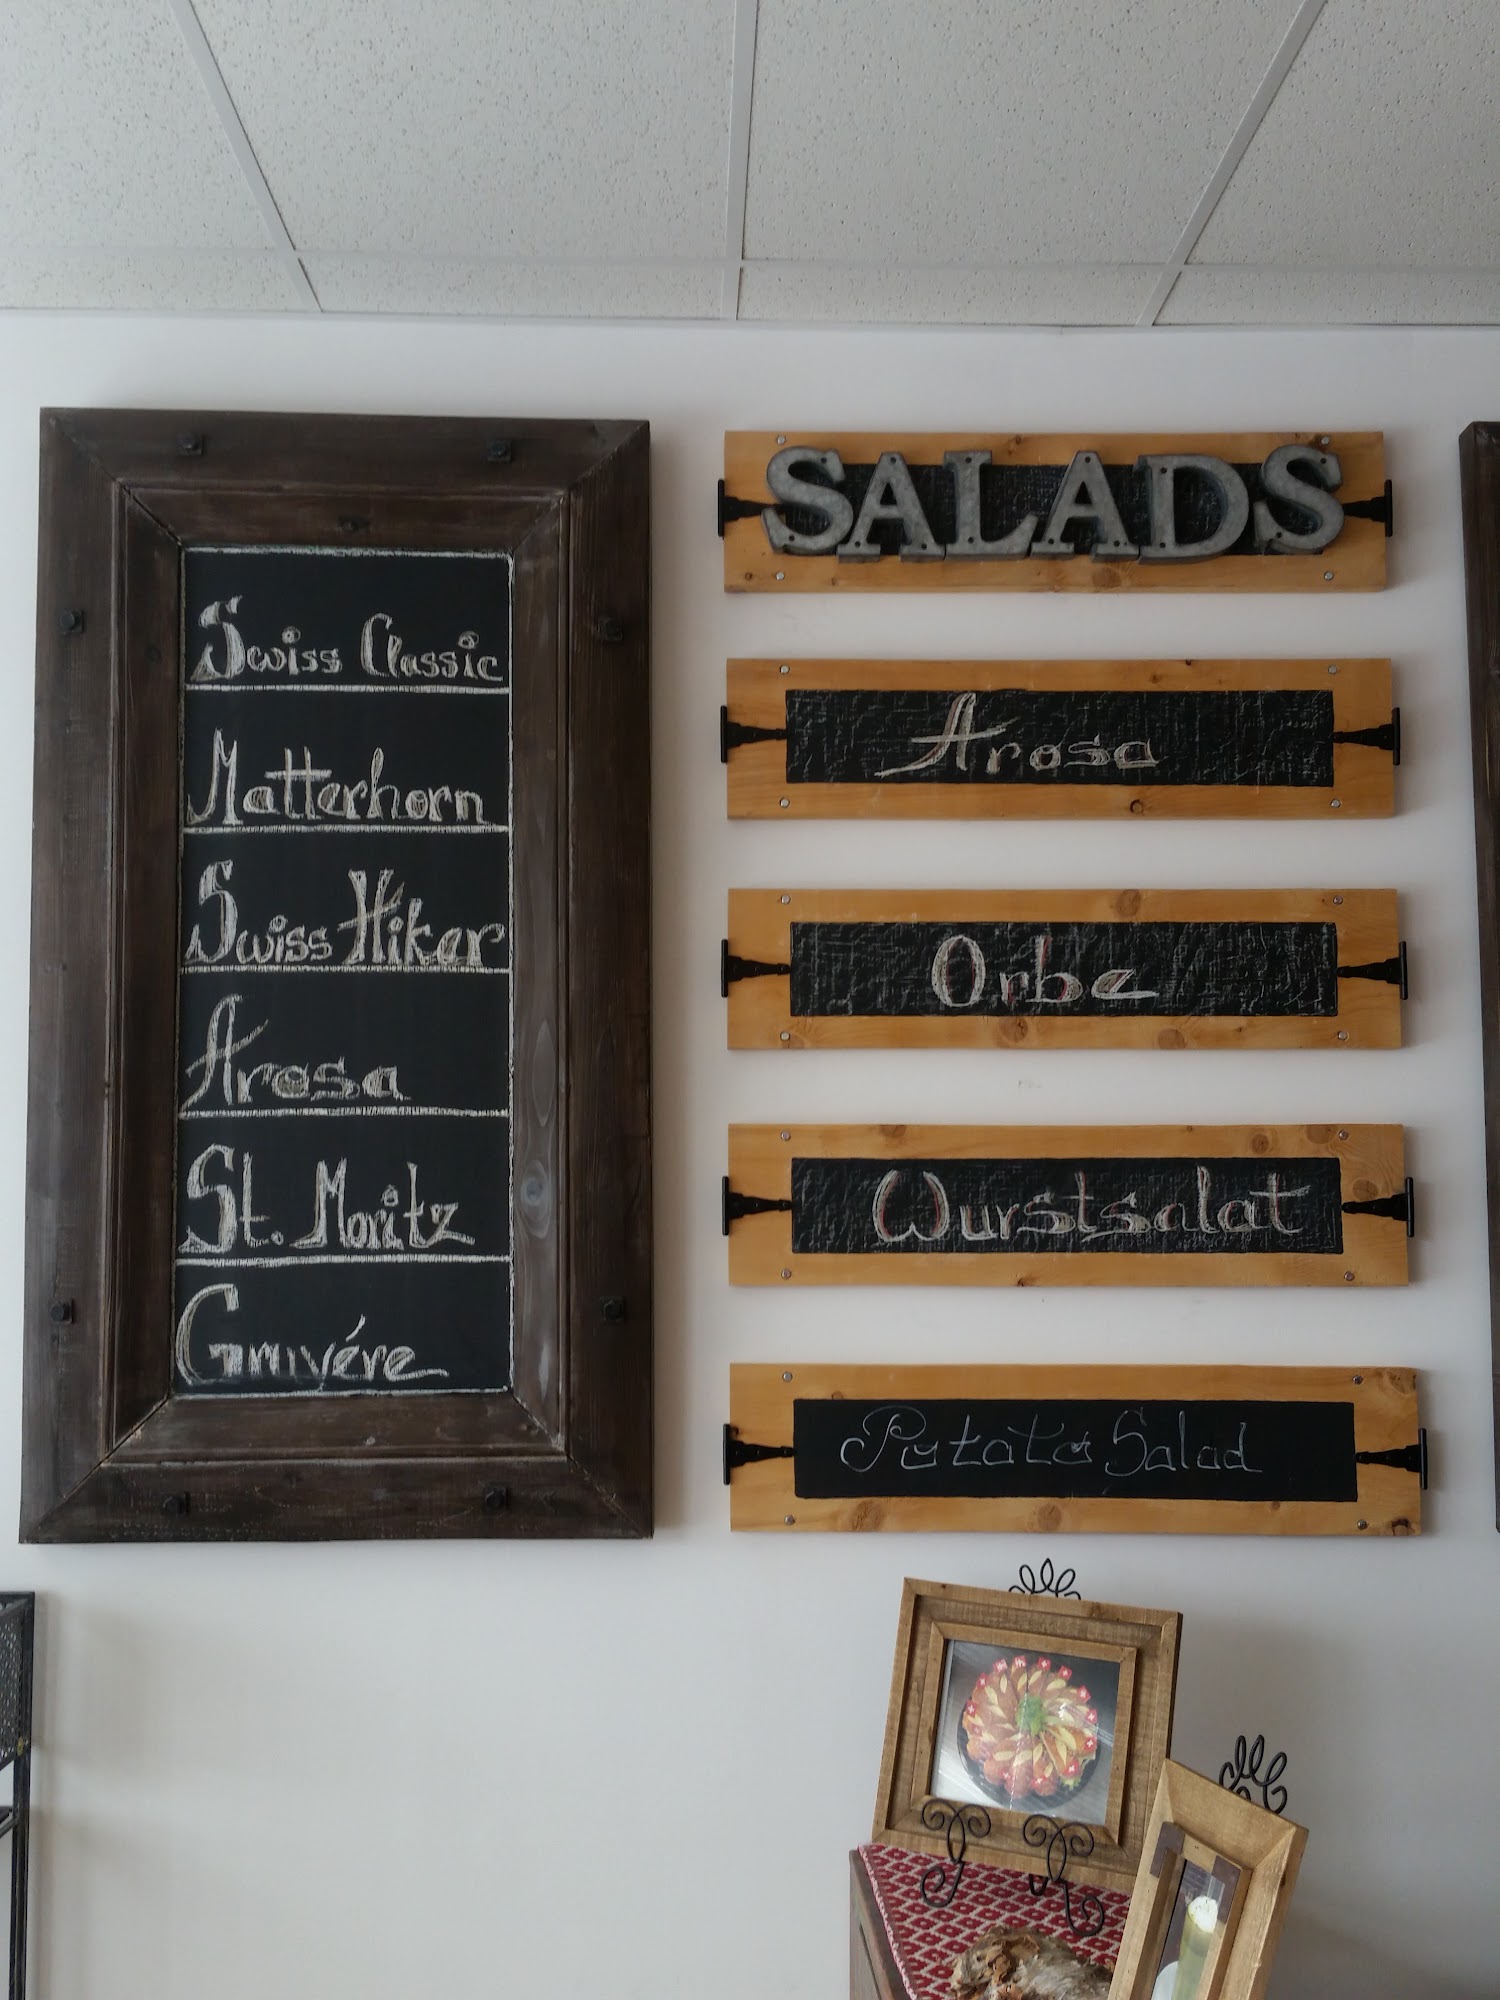 Swiss Classic
Matterhorn
Swiss Hiker
Arosa
St. Moritz
Gruyére
SALADS
Arosa
Orbe
Wurstsalat
Potato Salad